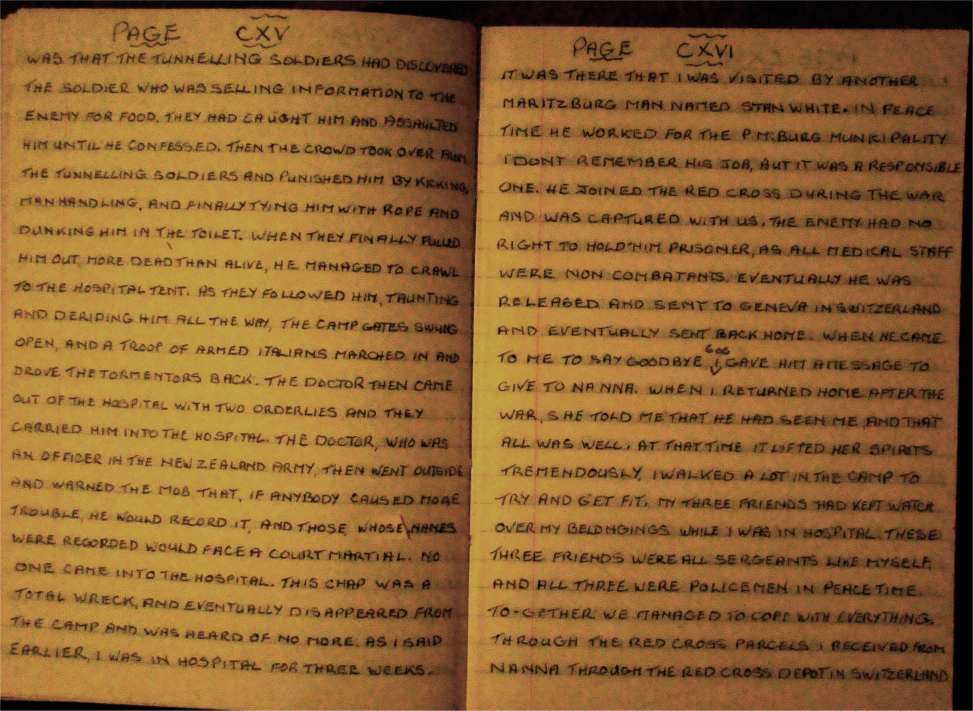 PAGE CXV
WAS THAT THE TUNNELLING SOLDIERS HAD DISCOVERED
THE SOLDIER WHO WAS SELLING INFORMATION TO THE
ENEMY FOR FOOD. THEY HAD CAUGHT HIM AND ASSAULTED
HIM UNTIL HE CONFESSED. THEN THE CROWD TOOK OVER FROM
THE TUNNELLING SOLDIERS AND PUNISHED HIM BY KICKING,
MANHANDLING, AND FINALLY TYING HIM WITH ROPE AND
DUNKING HIM IN THE TOILET. WHEN THEY FINALLY PULLED
HIM OUT, MORE DEAD THAN ALIVE, HE MANAGED TO CRAWL
TO THE HOSPITAL TENT. AS THEY FOLLOWED HIM, TAUNTING
AND DERIDING HIM ALL THE WAY, THE CAMP GATES SWUNG
OPEN, AND A TROOP OF ARMED ITALIANS MARCHED IN AND
DROVE THE TORMENTORS BACK. THE DOCTOR THEN CAME
OUT OF THE HOSPITAL WITH TWO ORDERLIES AND THEY
CARRIED HIM INTO THE HOSPITAL. THE DOCTOR, WHO WAS
AN OFFICER IN THE NEW ZEALAND ARMY, THEN WENT OUTSIDE
AND WARNED THE MOB THAT, IF ANYBODY CAUSED MORE
TROUBLE, HE WOULD RECORD IT, AND THOSE WHOSE NAMES
WERE RECORDED WOULD FACE A COURT MARTIAL. NO
ONE CAME INTO THE HOSPITAL. THIS CHAP WAS A
TOTAL WRECK, AND EVENTUALLY DISAPPEARED FROM
THE CAMP AND WAS HEARD OF NO MORE. AS I SAID
EARLIER, I WAS IN HOSPITAL FOR THREE WEEKS.
PAGE CXVI
IT WAS THERE THAT I WAS VISITED BY ANOTHER
MARITZBURG MAN NAMED STAN WHITE. IN PEACE
TIME HE WORKED FOR THE P.M.BURG MUNICIPALITY
I DONT REMEMBER HIS JOB, BUT IT WAS A RESPONSIBLE
ONE. HE JOINED THE RED CROSS DURING THE WAR
AND WAS CAPTURED WITH US. THE ENEMY HAD NO
RIGHT TO HOLD HIM PRISONER, AS ALL MEDICAL STAFF
WERE NON COMBATANTS. EVENTUALLY HE WAS
RELEASED AND SENT TO GENEVA IN SWITZERLAND
AND EVENTUALLY SENT BACK HOME. WHEN HE CAME
TO ME TO SAY GOODBYE, I GAVE HIM A MESSAGE TO
GIVE TO NANNA. WHEN I RETURNED HOME AFTER THE
WAR, SHE TOLD ME THAT HE HAD SEEN ME, AND THAT
ALL WAS WELL. AT THAT TIME IT LIFTED HER SPIRITS
TREMENDOUSLY, I WALKED A LOT IN THE CAMP TO
TRY AND GET FIT. MY THREE FRIENDS HAD KEPT WATCH
OVER MY BELONGINGS WHILE I WAS IN HOSPITAL. THESE
THREE FRIENDS WERE ALL SERGEANTS LIKE MYSELF,
AND ALL THREE WERE POLICEMEN IN PEACE TIME.
TO-GETHER WE MANAGED TO COPE WITH EVERYTHING.
THROUGH THE RED CROSS PARCELS I RECEIVED FROM
NANNA THROUGH THE RED CROSS DEPOT IN SWITZERLAND